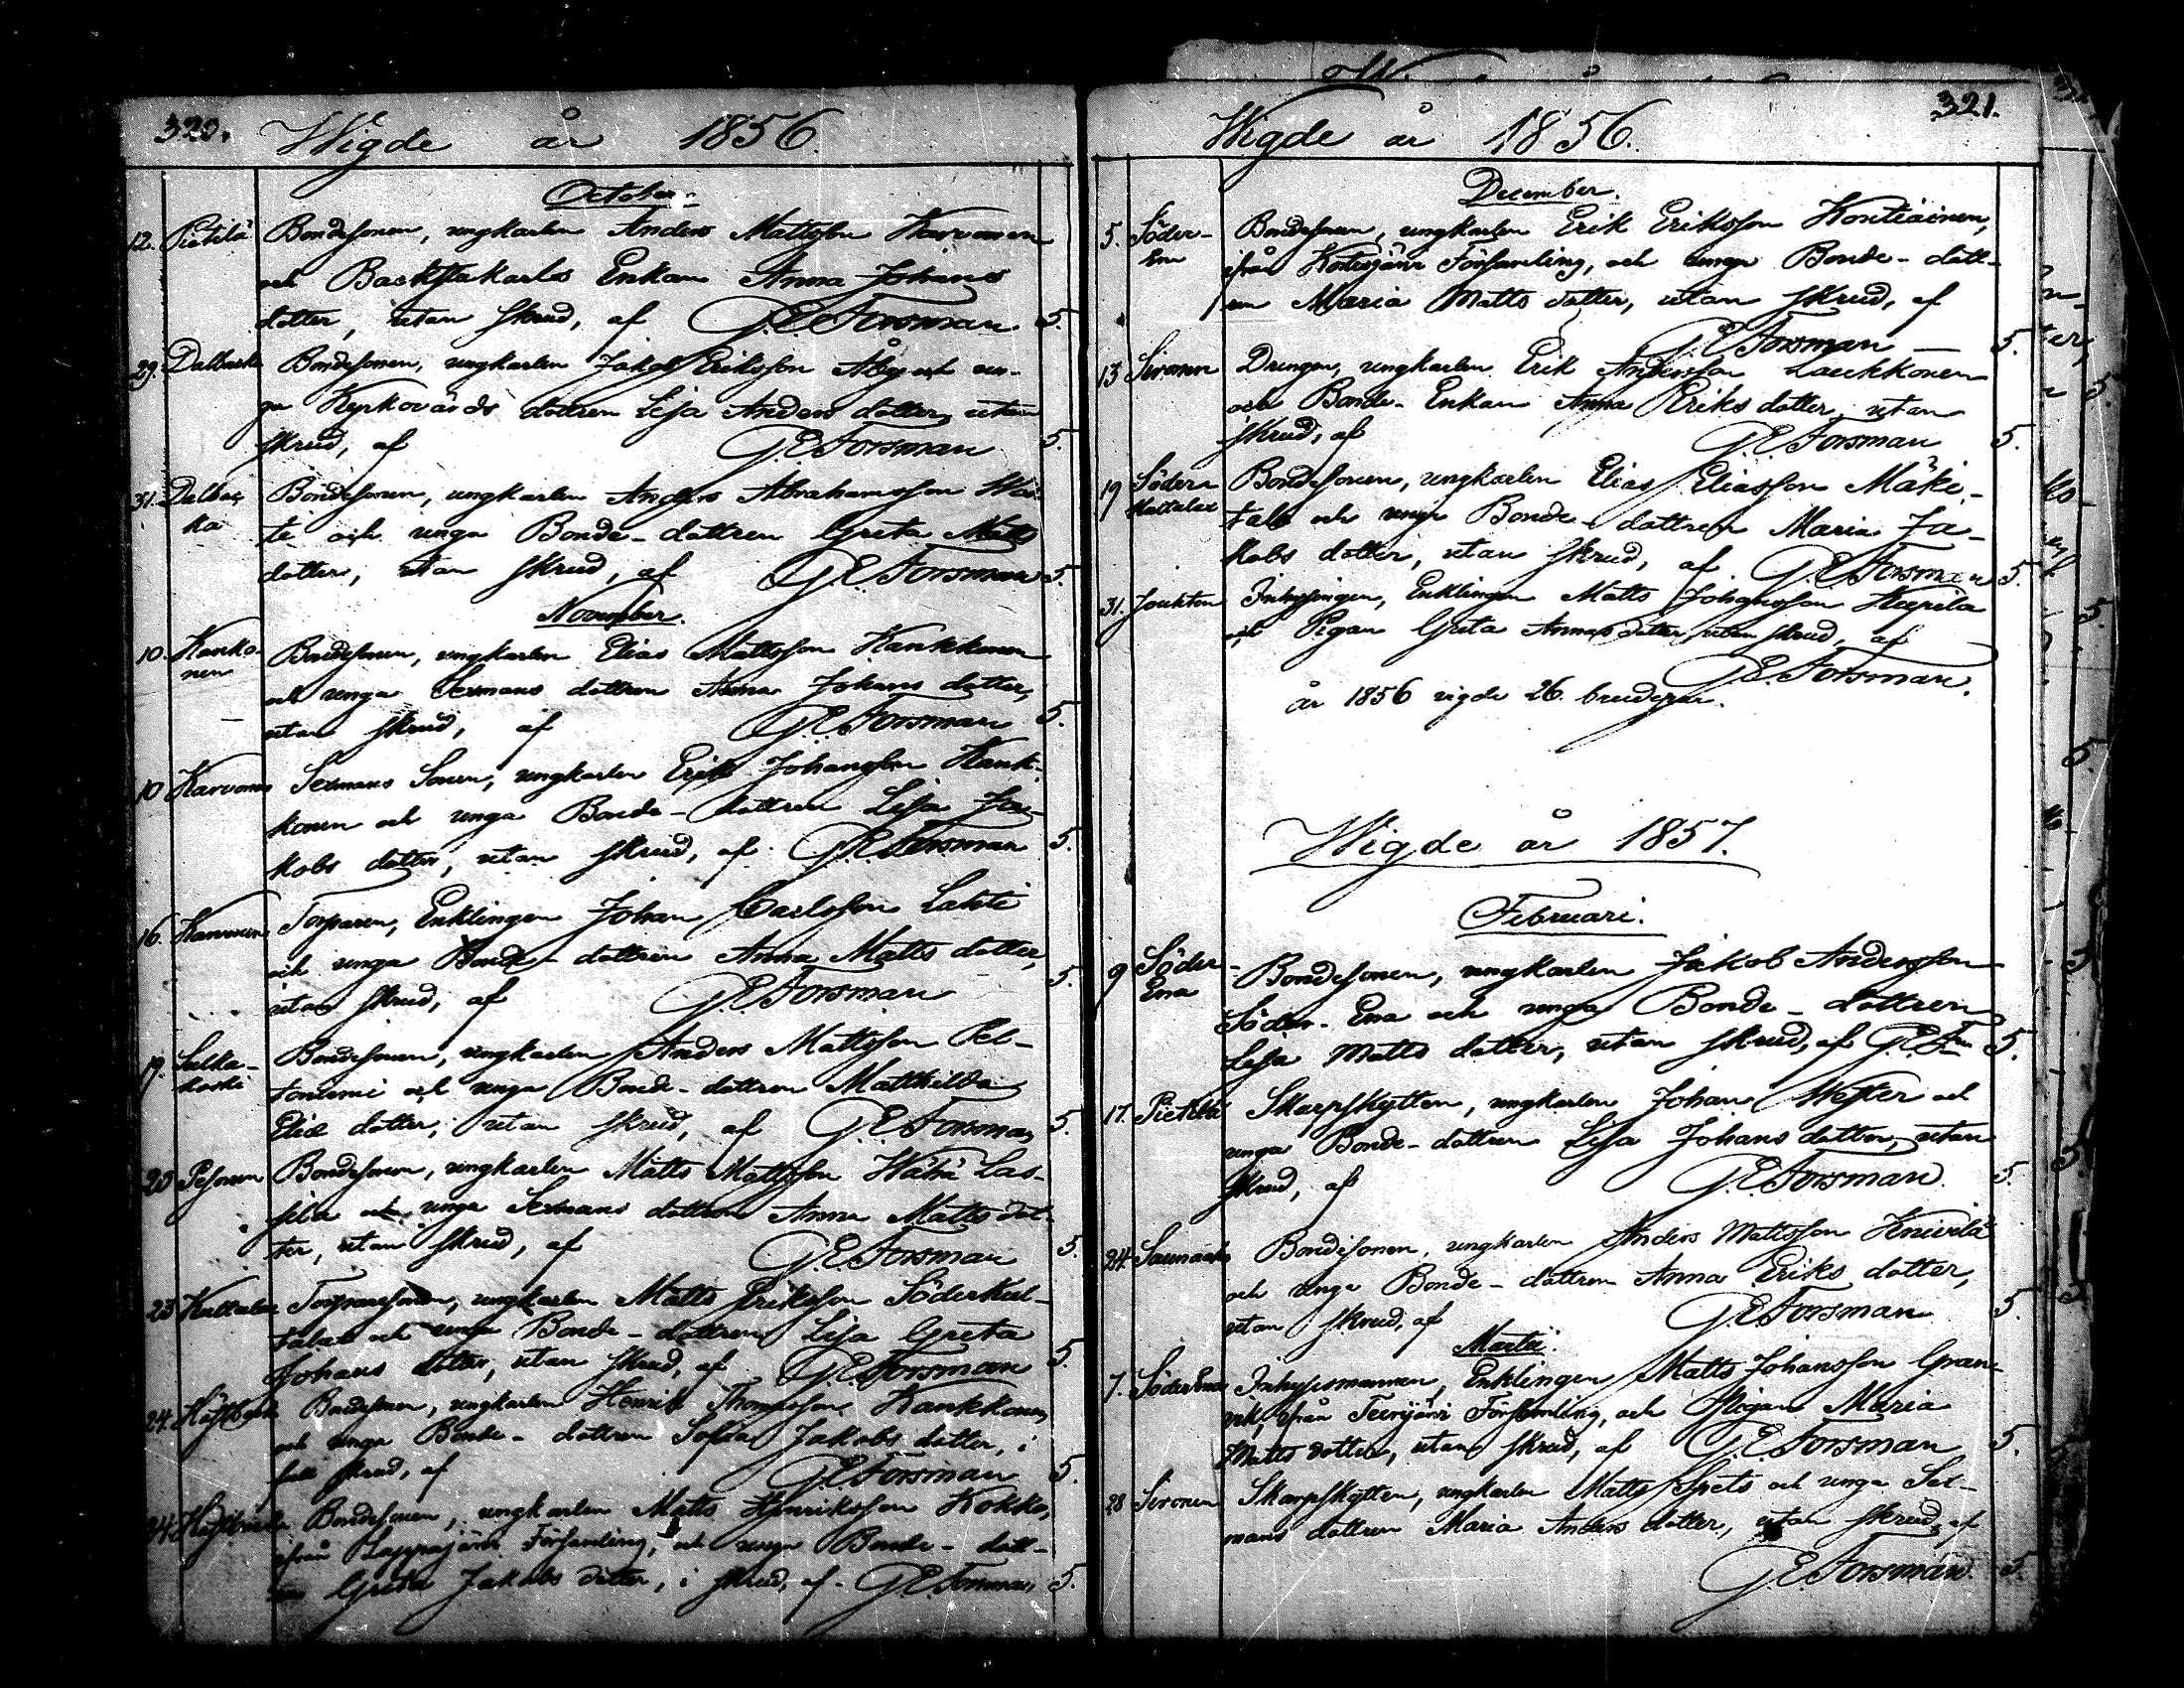 320.
Wigde år 1856.
October.
12. Pietilä Bondesonen, ungkarlen Anders Mattsson Karvonen
och Backstukarls Enkan Anna Johans
dotter, utan skrud, af G.E. Forsman 5.
29. Dalbacka Bondesonen, ungkarlen Jakob Eriksson Åby och un-
ga Kyrkovärds dottren Lisa Anders dotter, utan
skrud, af G.E. Forsman 5.
31. Dalbac- Bondesonen, ungkarlen Anders Abrahamsson
ka te och unga Bonde-dottren Greta Matts
dotter, utan skrud, af G.E. Forsman 5.
November.
10. Kanko- Bondesonen, ungkarlen Elias Mattsson Kankkonen
nen och unga Sexmans dottren Anna Johans dotter,
utan skrud, af G.E. Forsman 5.
10 Karvonen Sexmans Sonen, ungkarlen Erik Johansson Kank-
konen och unga Bonde-dottren Lisa Ja-
kobs dotter, utan skrud, af G.E. Forsman 5.
16. Torparen, Enklingen Johan Carlsson Lahti
och unga Bonde-dottren Anna Matts dotter,
utan skrud, af G.E. Forsman 5.
19. Salka- Bondesonen, ungkarlen Anders Mattsson Pel-
koski toniemi och unga Bonde-dottren Matthilda
Elias dotter, utan skrud, af G.E. Forsman 5.
20 Pesonen Bondesonen, ungkarlen Matts Mattsson Wähä Las-
sila och unga Sexmans dottren Anna Matts dot-
ter, utan skrud, af G.E. Forsman 5.
23 Kattalax Torparesonen, ungkarlen Matts Eriksson Söderkat-
talax och unga Bonde-dottren Lisa Greta
Johans dotter, utan skrud, af G.E. Forsman 5.
24. Bondesonen, ungkarlen Henrik Thomasson Kankkonen
och unga Bonde-dottren Sofia Jakobs dotter, i
full skrud, af G.E. Forsman 5.
24. Bondesonen, ungkarlen Matts Henriksson Kokko,
ifrån Lappajärvi Församling, och unga Bonde-dott-
ren Greta Jakobs dotter, i skrud, af G.E. Forsman 5.
321.
Wigde år 1856.
December.
5. Söder- Bondesonen, ungkarlen Erik Eriksson Kontiainen,
Ena ifrån Kortesjärvi Församling, och unga Bonde-dott-
ren Maria Matts dotter, utan skrud, af
G.E. Forsman 5.
13 Sironen Drengen, ungkarlen Erik Andersson Laukkonen
och Bonde-Enkan Anna Eriks dotter, utan
skrud, af G.E. Forsman 5.
19 Söder- Bondesonen, ungkarlen Elias Eliasson Mäki-
Kattalax talo och unga Bonde-dottren Maria Ja-
kobs dotter, utan skrud, af G.E. Forsman 5.
31. Jouhten Inhysingen, Enklingen Matts Johansson Kapila
och Pigan Greta Annas dotter, utan skrud, af
G.E. Forsman.
år 1856 vigde 26 brudepar.
Wigde år 1857.
Februari.
9 Söder- Bondesonen, ungkarlen Jakob Andersson
Ena Söder-Ena och unga Bonde-dottren
Lisa Matts dotter, utan skrud, af G.E. Fsn 5.
17. Pietilä Skarpskytten, ungkarlen Johan Wester och
unga Bonde-dottren Lisa Johans dotter, utan
skrud, af G.E. Forsman 5.
24. Bondesonen, ungkarlen Anders Mattsson Knivilä
och unga Bonde-dottren Anna Eriks dotter,
utan skrud, af G.E. Forsman 5
Martii.
7. Söder Ena Inhysesmannen, Enklingen Matts Johansson Gran-
vik, ifrån Terijärvi Församling, och Pigan Maria
Matts dotter, utan skrud, af G.E. Forsman 5.
28 Sironen Skarpskytten, ungkarlen Matts Spets och unga Sex-
mans dottren Maria Anders dotter, utan skrud, af
G.E. Forsman 5.